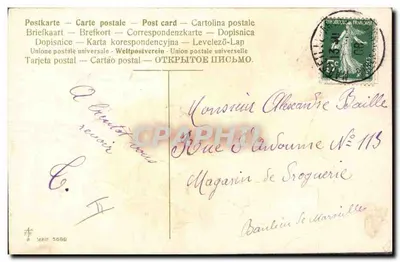 Postkarte - Carte postale - Post card - Cartolina postale
Briefkaart - Brefkort - Correspondenzkarte - Dopisnica
Dopisnice - Karta korespondencyjna - Levelező-Lap
Union postale universelle - Weltpostverein - Union postale universelle
Tarjeta postal - Cartão postal - ОТКРЫТОЕ ПИСЬМО.
A bientôt vous
revoir
C.
Monsieur Alexandre Baille
Rue d'Aubagne No 113
Magasin de Droguerie
Banlieue de Marseille
CPAPHIL